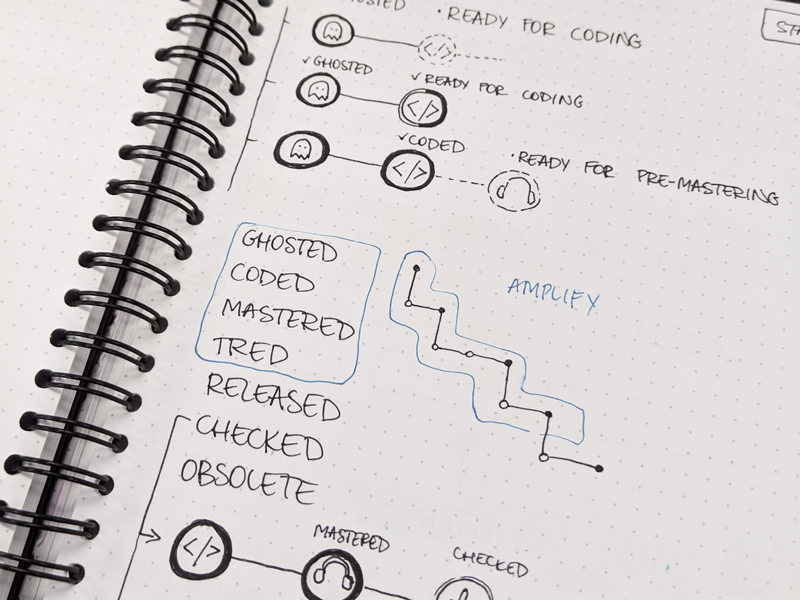 • READY FOR CODING
STA
✓ GHOSTED
✓ READY FOR CODING
</>
✓ CODED
</>
• READY FOR PRE-MASTERING
GHOSTED
CODED
MASTERED
TRED
RELEASED
CHECKED
OBSOLETE
AMPLIFY
</>
MASTERED
CHECKED